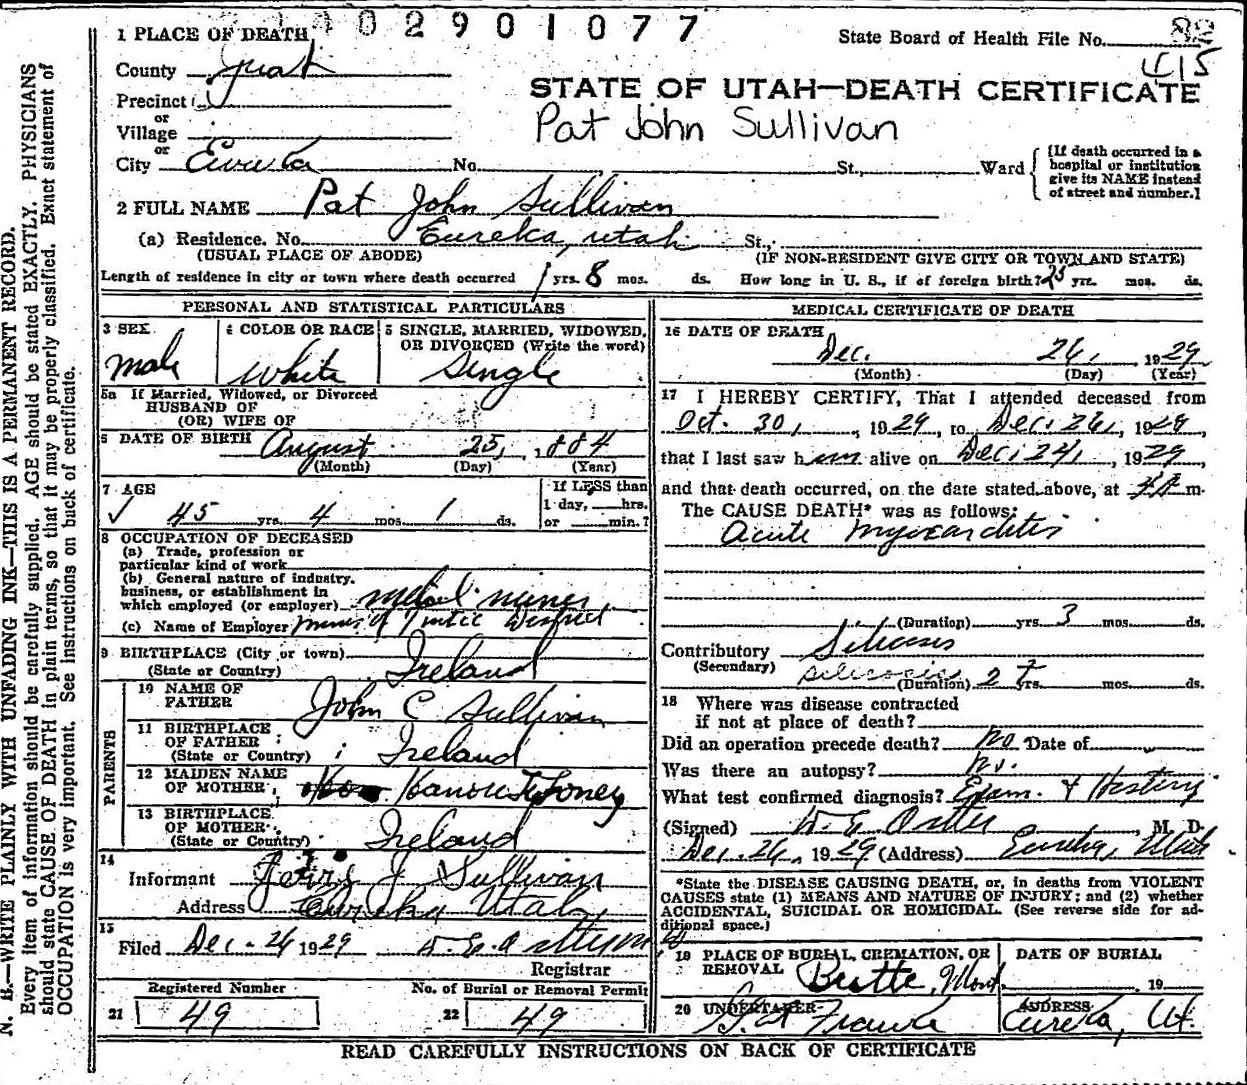 2901077
82
State Board of Health File No. 415
STATE OF UTAH—DEATH CERTIFICATE
Pat John Sullivan
1 PLACE OF DEATH
County Juab
Precinct
or
Village
or
City Eureka No. St., Ward
[If death occurred in a
hospital or institution
give its NAME instead
of street and number.]
2 FULL NAME Pat John Sullivan
(a) Residence. No. Eureka, Utah St.,
(USUAL PLACE OF ABODE) (IF NON-RESIDENT GIVE CITY OR TOWN AND STATE)
Length of residence in city or town where death occurred 1 yrs. 8 mos. ds. How long in U. S., if of foreign birth? 25 yrs. mos. ds.
PERSONAL AND STATISTICAL PARTICULARS
3 SEX 4 COLOR OR RACE 5 SINGLE, MARRIED, WIDOWED,
OR DIVORCED (Write the word)
male white Single
5a If Married, Widowed, or Divorced
HUSBAND OF
(OR) WIFE OF
6 DATE OF BIRTH August 25, 1884
(Month) (Day) (Year)
7 AGE If LESS than
1 day, hrs.
45 yrs. 4 mos. 1 ds. or min.?
8 OCCUPATION OF DECEASED
(a) Trade, profession or
particular kind of work
(b) General nature of industry,
business, or establishment in
which employed (or employer) metal miner
(c) Name of Employer mines of Tintic District
9 BIRTHPLACE (City or town)
(State or Country) Ireland
PARENTS
10 NAME OF
FATHER John C Sullivan
11 BIRTHPLACE
OF FATHER
(State or Country) Ireland
12 MAIDEN NAME
OF MOTHER
13 BIRTHPLACE
OF MOTHER
(State or Country) Ireland
14
Informant J Sullivan
Address Eureka Utah
15
Filed Dec. 26 1929
Registrar
Registered Number No. of Burial or Removal Permit
21 49 22 49
MEDICAL CERTIFICATE OF DEATH
16 DATE OF DEATH
Dec. 26, 1929
(Month) (Day) (Year)
17 I HEREBY CERTIFY, That I attended deceased from
Oct. 30, 1929, to Dec. 26, 1929,
that I last saw him alive on Dec. 24, 1929,
and that death occurred, on the date stated above, at m.
The CAUSE DEATH* was as follows:
Acute myocarditis
(Duration) yrs. 3 mos. ds.
Contributory Silicosis
(Secondary) silicosis (Duration) 2 yrs. mos. ds.
18 Where was disease contracted
if not at place of death?
Did an operation precede death? no Date of
Was there an autopsy? no.
What test confirmed diagnosis? Exam. & History
(Signed) M. D.
Dec. 26, 1929 (Address) Eureka, Utah
*State the DISEASE CAUSING DEATH, or, in deaths from VIOLENT
CAUSES state (1) MEANS AND NATURE OF INJURY; and (2) whether
ACCIDENTAL, SUICIDAL OR HOMICIDAL. (See reverse side for ad-
ditional space.)
19 PLACE OF BURIAL, CREMATION, OR
REMOVAL Butte, Mont. DATE OF BURIAL
19
20 UNDERTAKER ADDRESS
Eureka, Ut.
READ CAREFULLY INSTRUCTIONS ON BACK OF CERTIFICATE
N. B.—WRITE PLAINLY WITH UNFADING INK—THIS IS A PERMANENT RECORD.
Every item of information should be carefully supplied. AGE should be stated EXACTLY. PHYSICIANS
should state CAUSE OF DEATH in plain terms, so that it may be properly classified. Exact statement of
OCCUPATION is very important. See instructions on back of certificate.